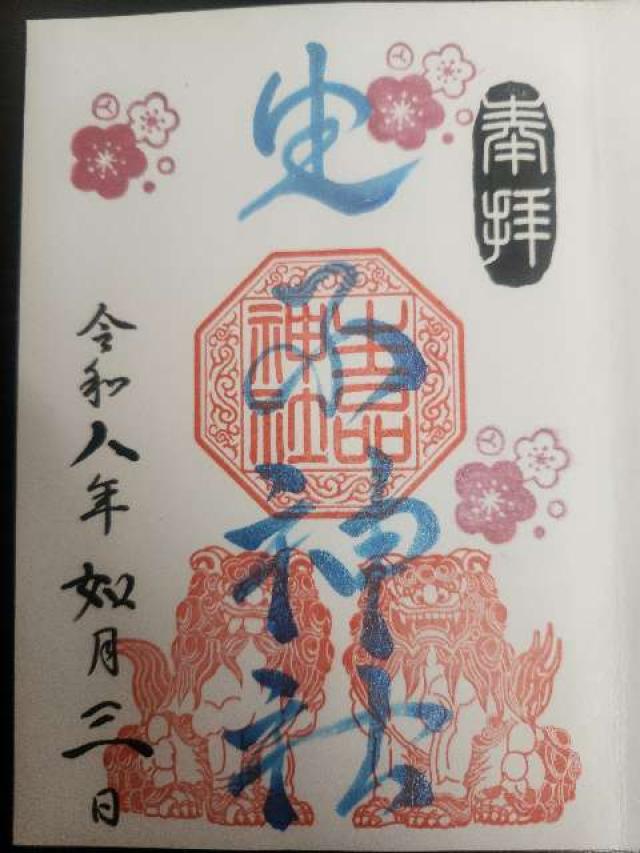 奉拝
生品神社
生品
神社
令和八年如月三日